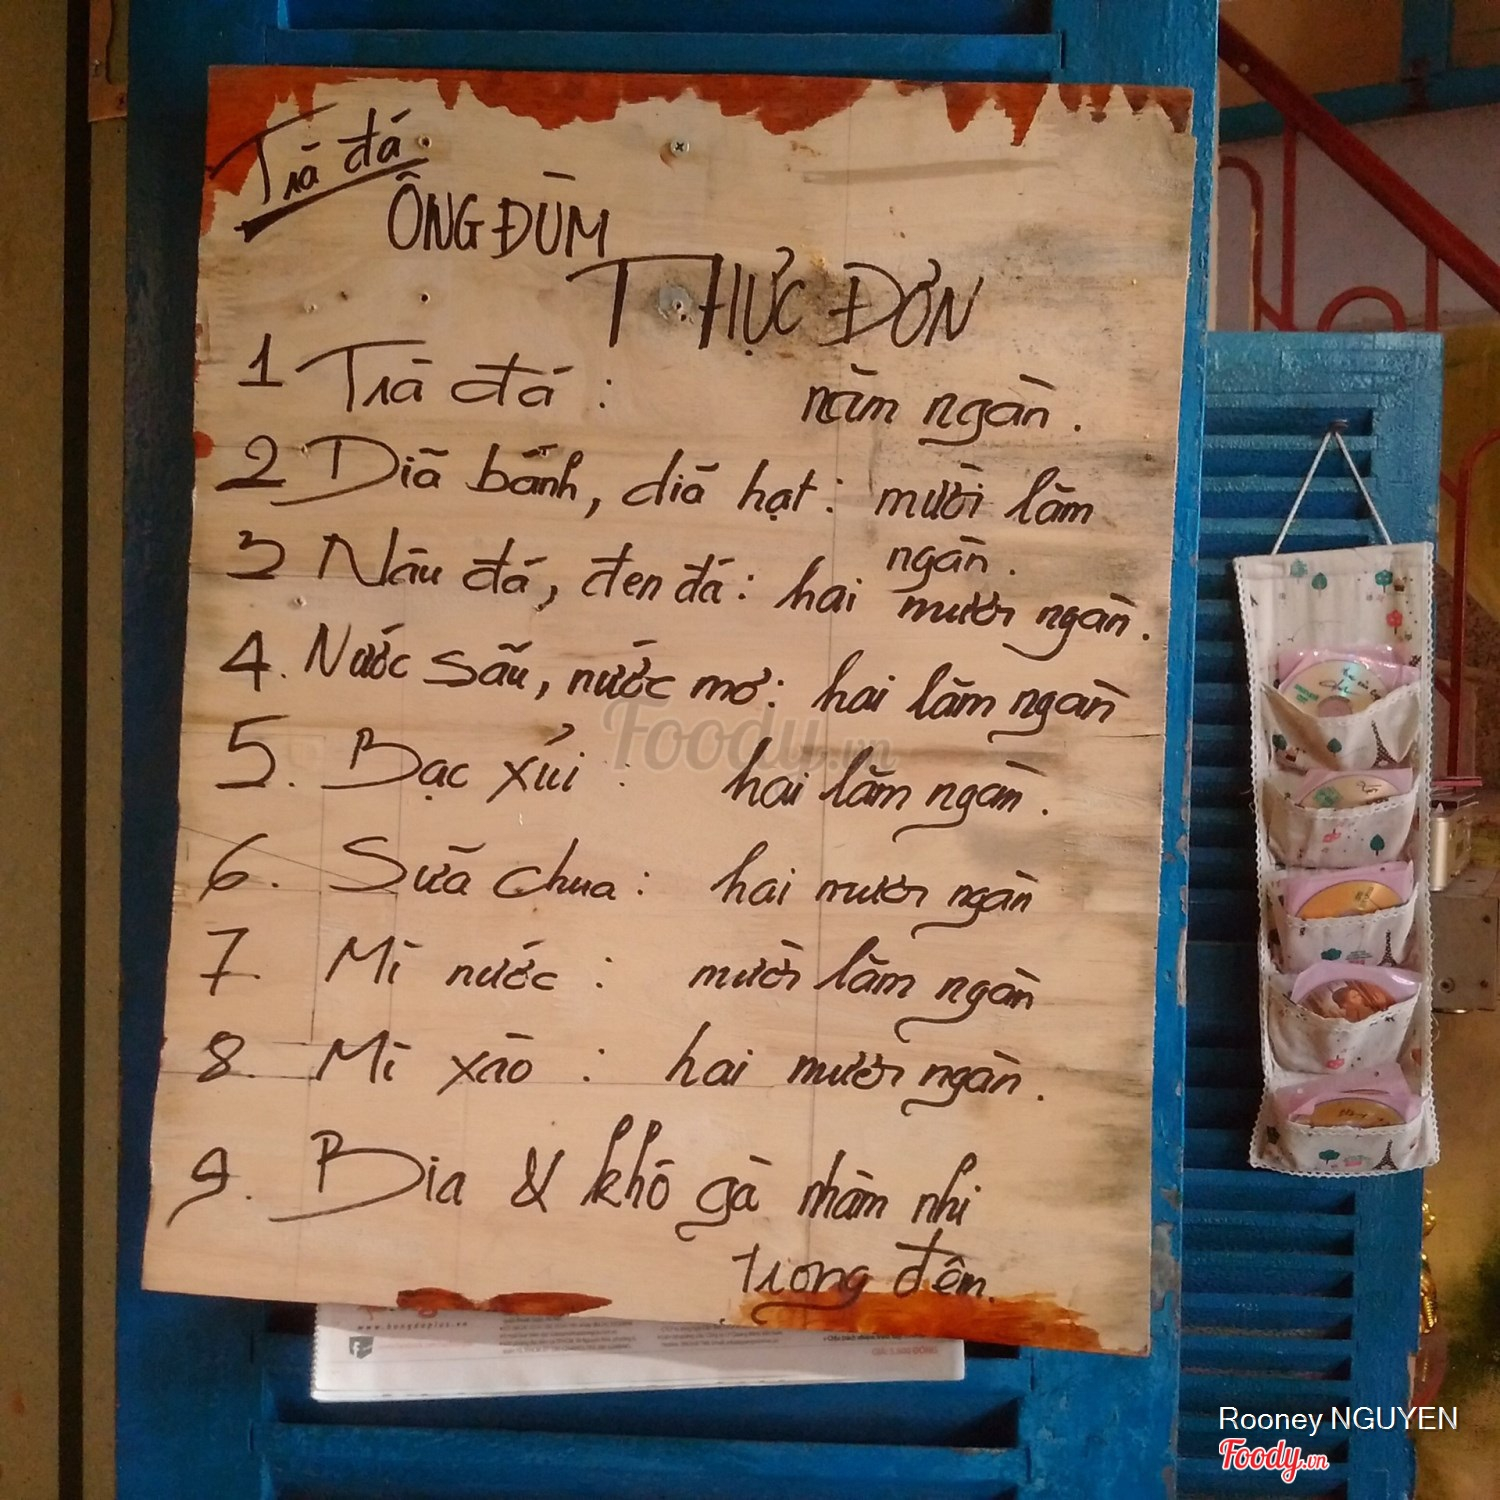 Trà đá
ÔNG ĐÙM
THỰC ĐƠN
1 Trà đá : năm ngàn.
2 Diã bánh, diã hạt : mười lăm
ngàn.
3 Nâu đá, đen đá : hai mươi ngàn.
4. Nước sấu, nước mơ : hai lăm ngàn
5. Bạc xỉu : hai lăm ngàn.
6. Sữa chua : hai mươi ngàn
7. Mì nước : mười lăm ngàn
8. Mì xào : hai mươi ngàn.
9. Bia & khô gà nhàm nhi
trong đêm.
Foody.vn
GIÁ: 5.500 ĐỒNG
Rooney NGUYEN
Foody.vn